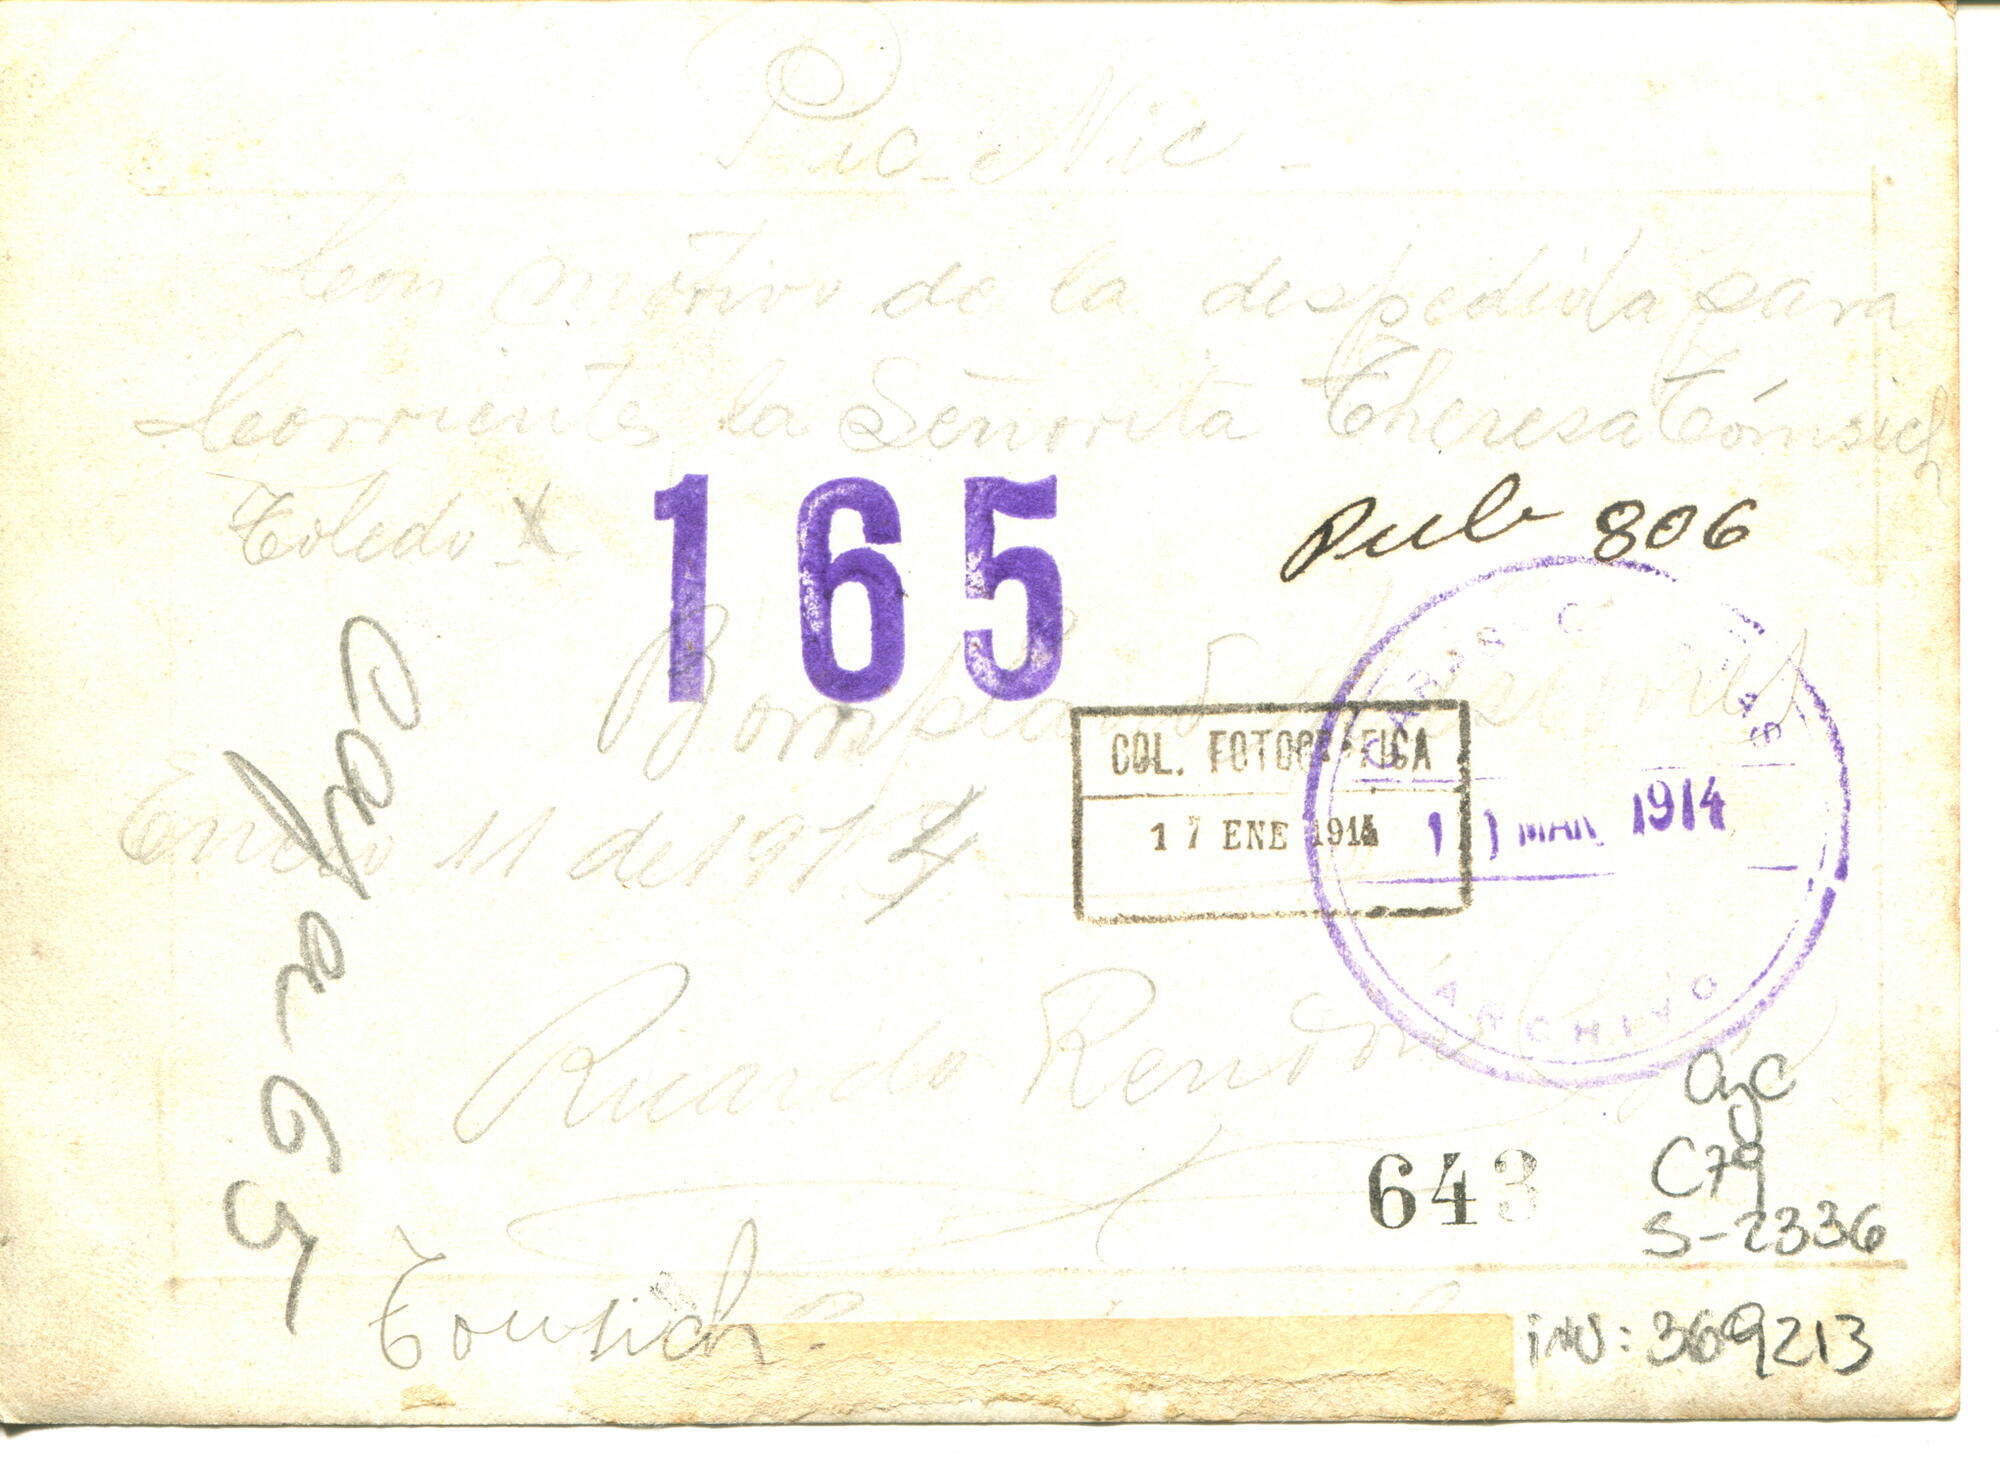 Pic-Nic -
Con motivo de la despedida para
Corrientes la Señorita Theresa Tómsich
Toledo X
165
Pub 806
Bompland Misiones
CARAS Y CARETAS
COL. FOTOGRÁFICA
17 ENE 1914
MAR 1914
ARCHIVO
Enero 11 de 1914
Ricardo Rendon
Caja 65
643
C79
S-2336
Tomsich -
inv: 369213